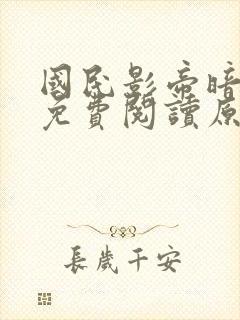 國民影帝暗
免費閱讀原
長歲千安